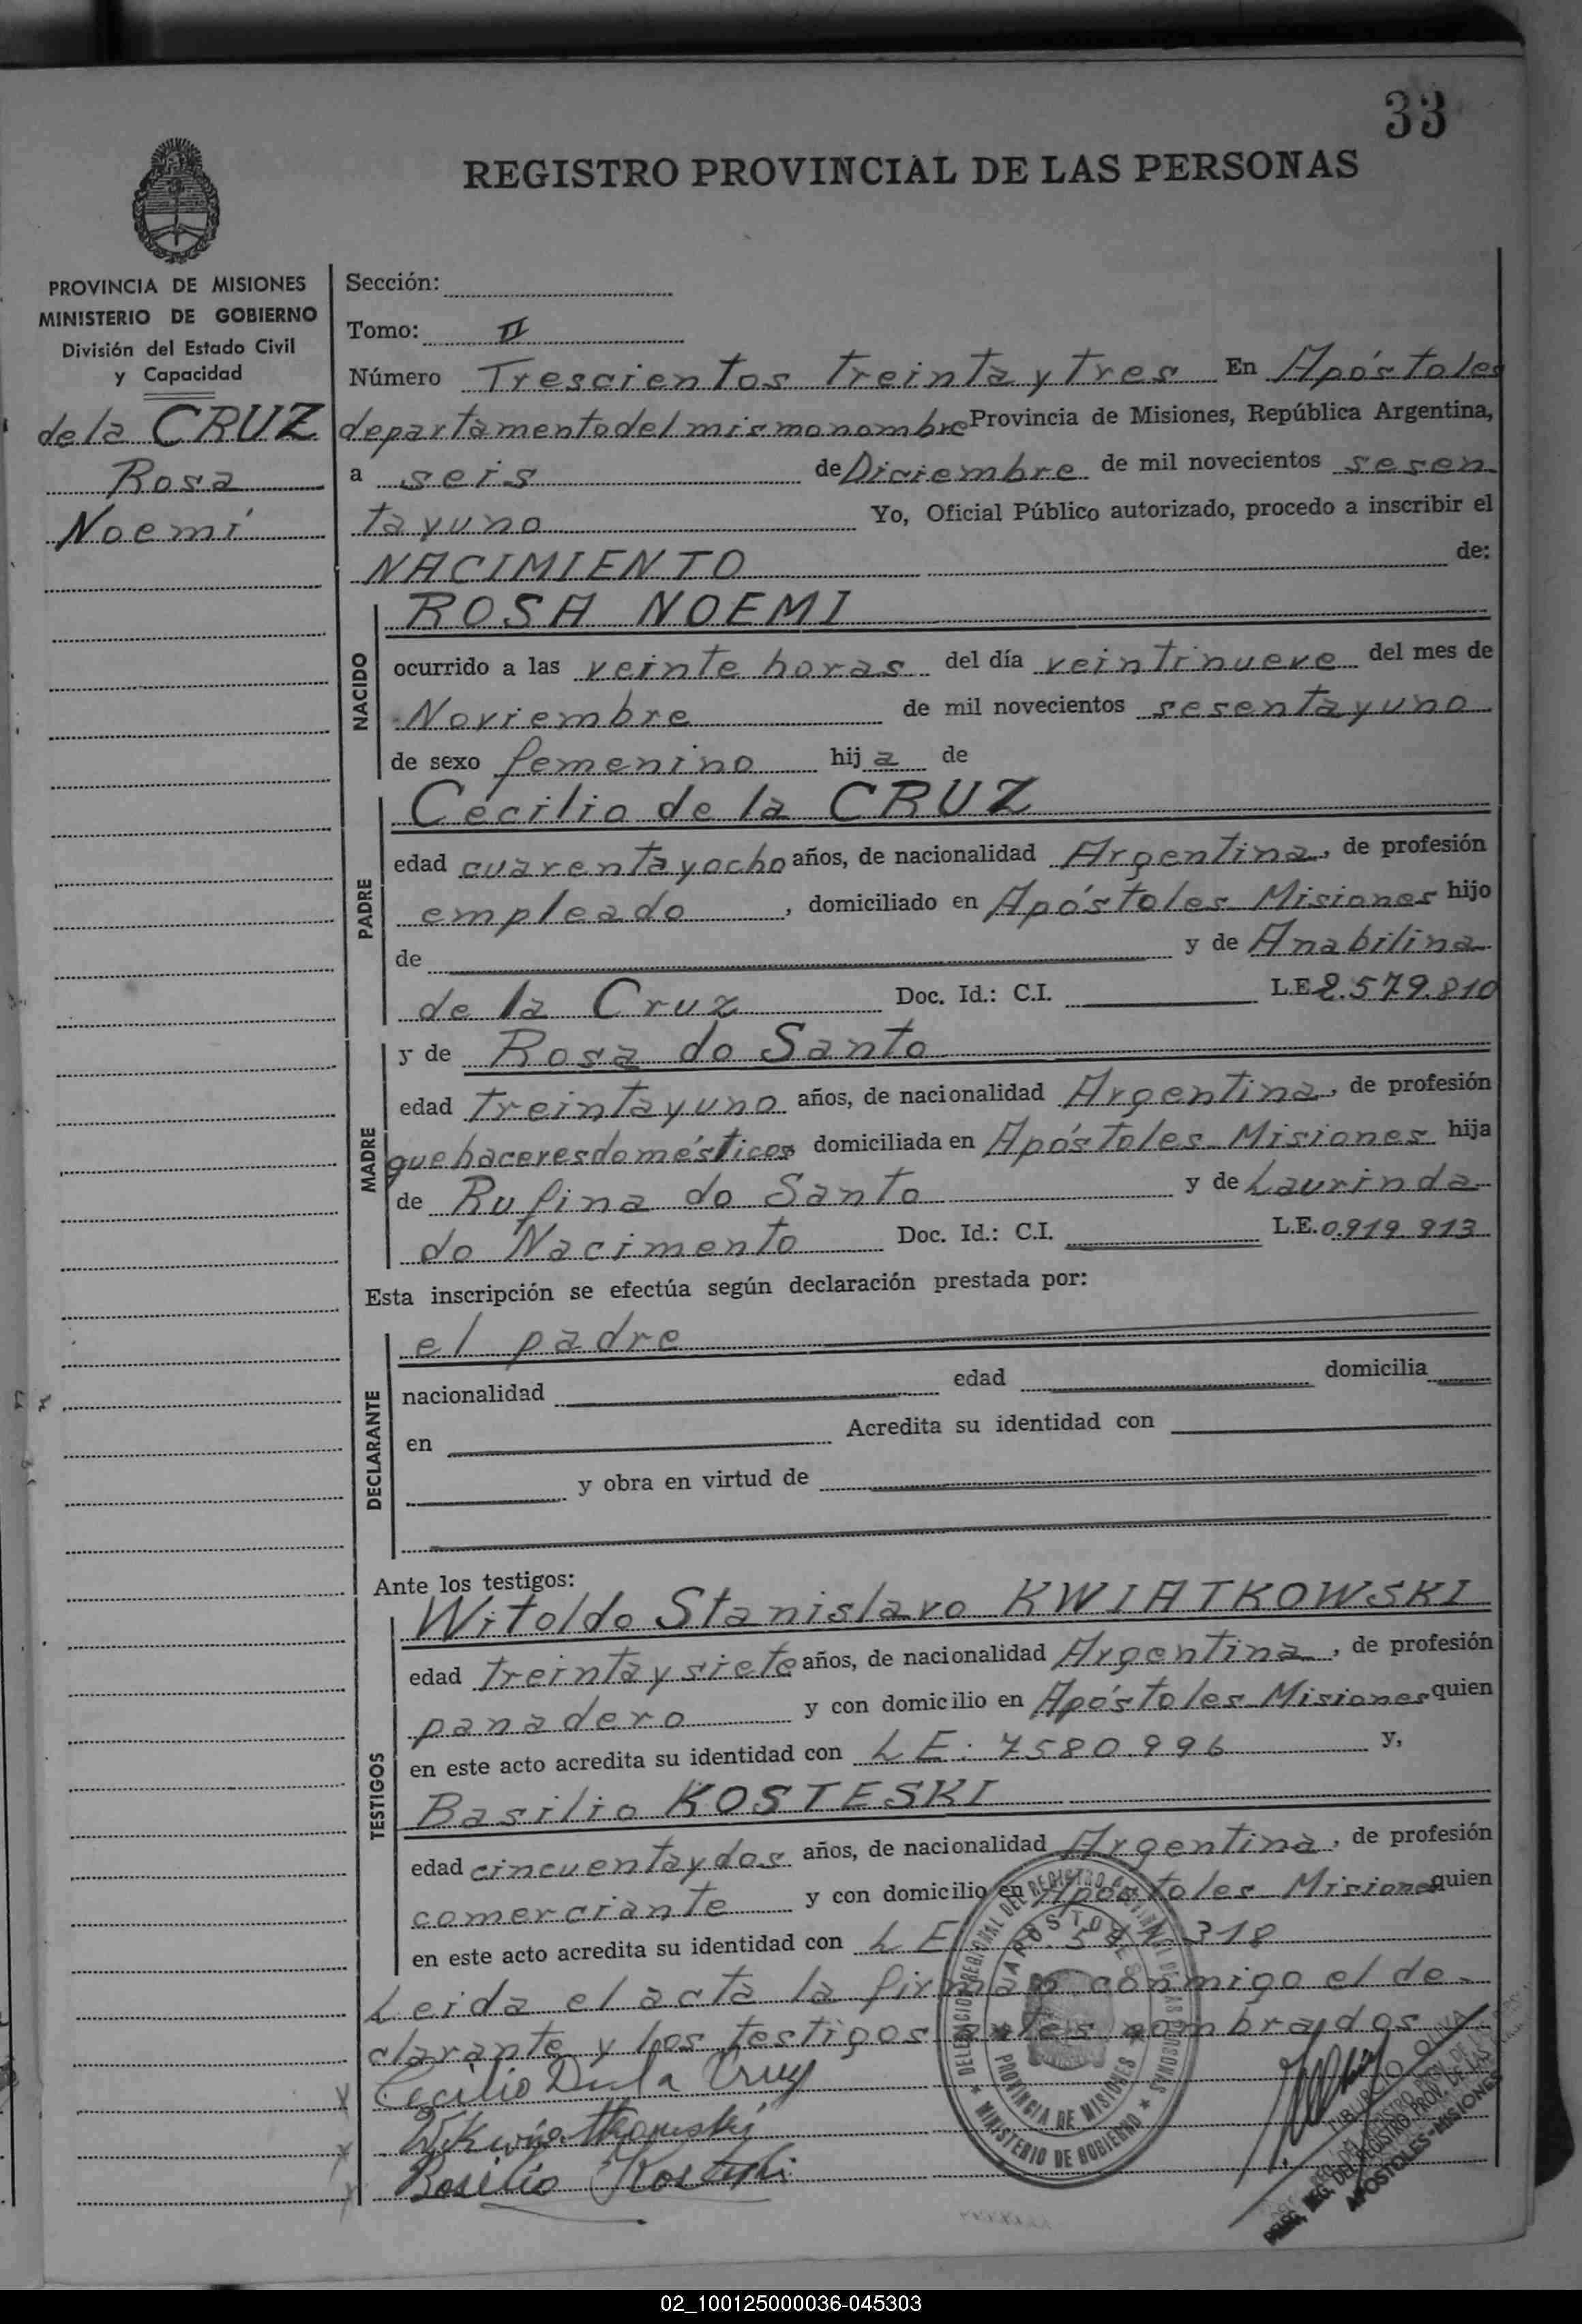 33
REGISTRO PROVINCIAL DE LAS PERSONAS
PROVINCIA DE MISIONES
MINISTERIO DE GOBIERNO
División del Estado Civil
y Capacidad
de la CRUZ
Rosa
Noemí
Sección:
Tomo: II
Número Trescientos treinta y tres En Apóstoles
departamento del mismo nombre Provincia de Misiones, República Argentina,
a seis de Diciembre de mil novecientos sesen
ta y uno Yo, Oficial Público autorizado, procedo a inscribir el
NACIMIENTO de:
NACIDO
ROSA NOEMI
ocurrido a las veinte horas del día veintinueve del mes de
Noviembre de mil novecientos sesenta y uno
de sexo femenino hij a de
PADRE
Cecilio de la CRUZ
edad cuarenta y ocho años, de nacionalidad Argentina, de profesión
empleado, domiciliado en Apóstoles Misiones hijo
de y de Anabilina
de la Cruz Doc. Id.: C.I. L.E 2.579.810
MADRE
y de Rosa do Santo
edad treinta y uno años, de nacionalidad Argentina, de profesión
quehaceres domésticos domiciliada en Apóstoles Misiones hija
de Rufina do Santo y de Laurinda
do Nacimento Doc. Id.: C.I. L.E. 0.919.913
Esta inscripción se efectúa según declaración prestada por:
DECLARANTE
el padre
nacionalidad edad domicilia
en Acredita su identidad con
y obra en virtud de
Ante los testigos:
TESTIGOS
Witoldo Stanislavo KWIATKOWSKI
edad treinta y siete años, de nacionalidad Argentina, de profesión
panadero y con domicilio en Apóstoles Misiones quien
en este acto acredita su identidad con L E. 7580.996 y,
Basilio KOSTESKI
edad cincuenta y dos años, de nacionalidad Argentina, de profesión
comerciante y con domicilio en Apóstoles Misiones quien
en este acto acredita su identidad con L E 318
Leida el acta la firman conmigo el de-
clarante y los testigos antes nombrados
Cecilio De la Cruz
W Kwiatkowski
Basilio Kosteski
DELEGACION REGIONAL DEL REGISTRO PROVINCIAL DE LAS PERSONAS
MINISTERIO DE GOBIERNO
APOSTOLES
PROVINCIA DE MISIONES
TIBURCIO OLIVA
DELEG. REG. DEL REGISTRO PROV. DE LAS
APOSTOLES - MISIONES
02_100125000036-045303